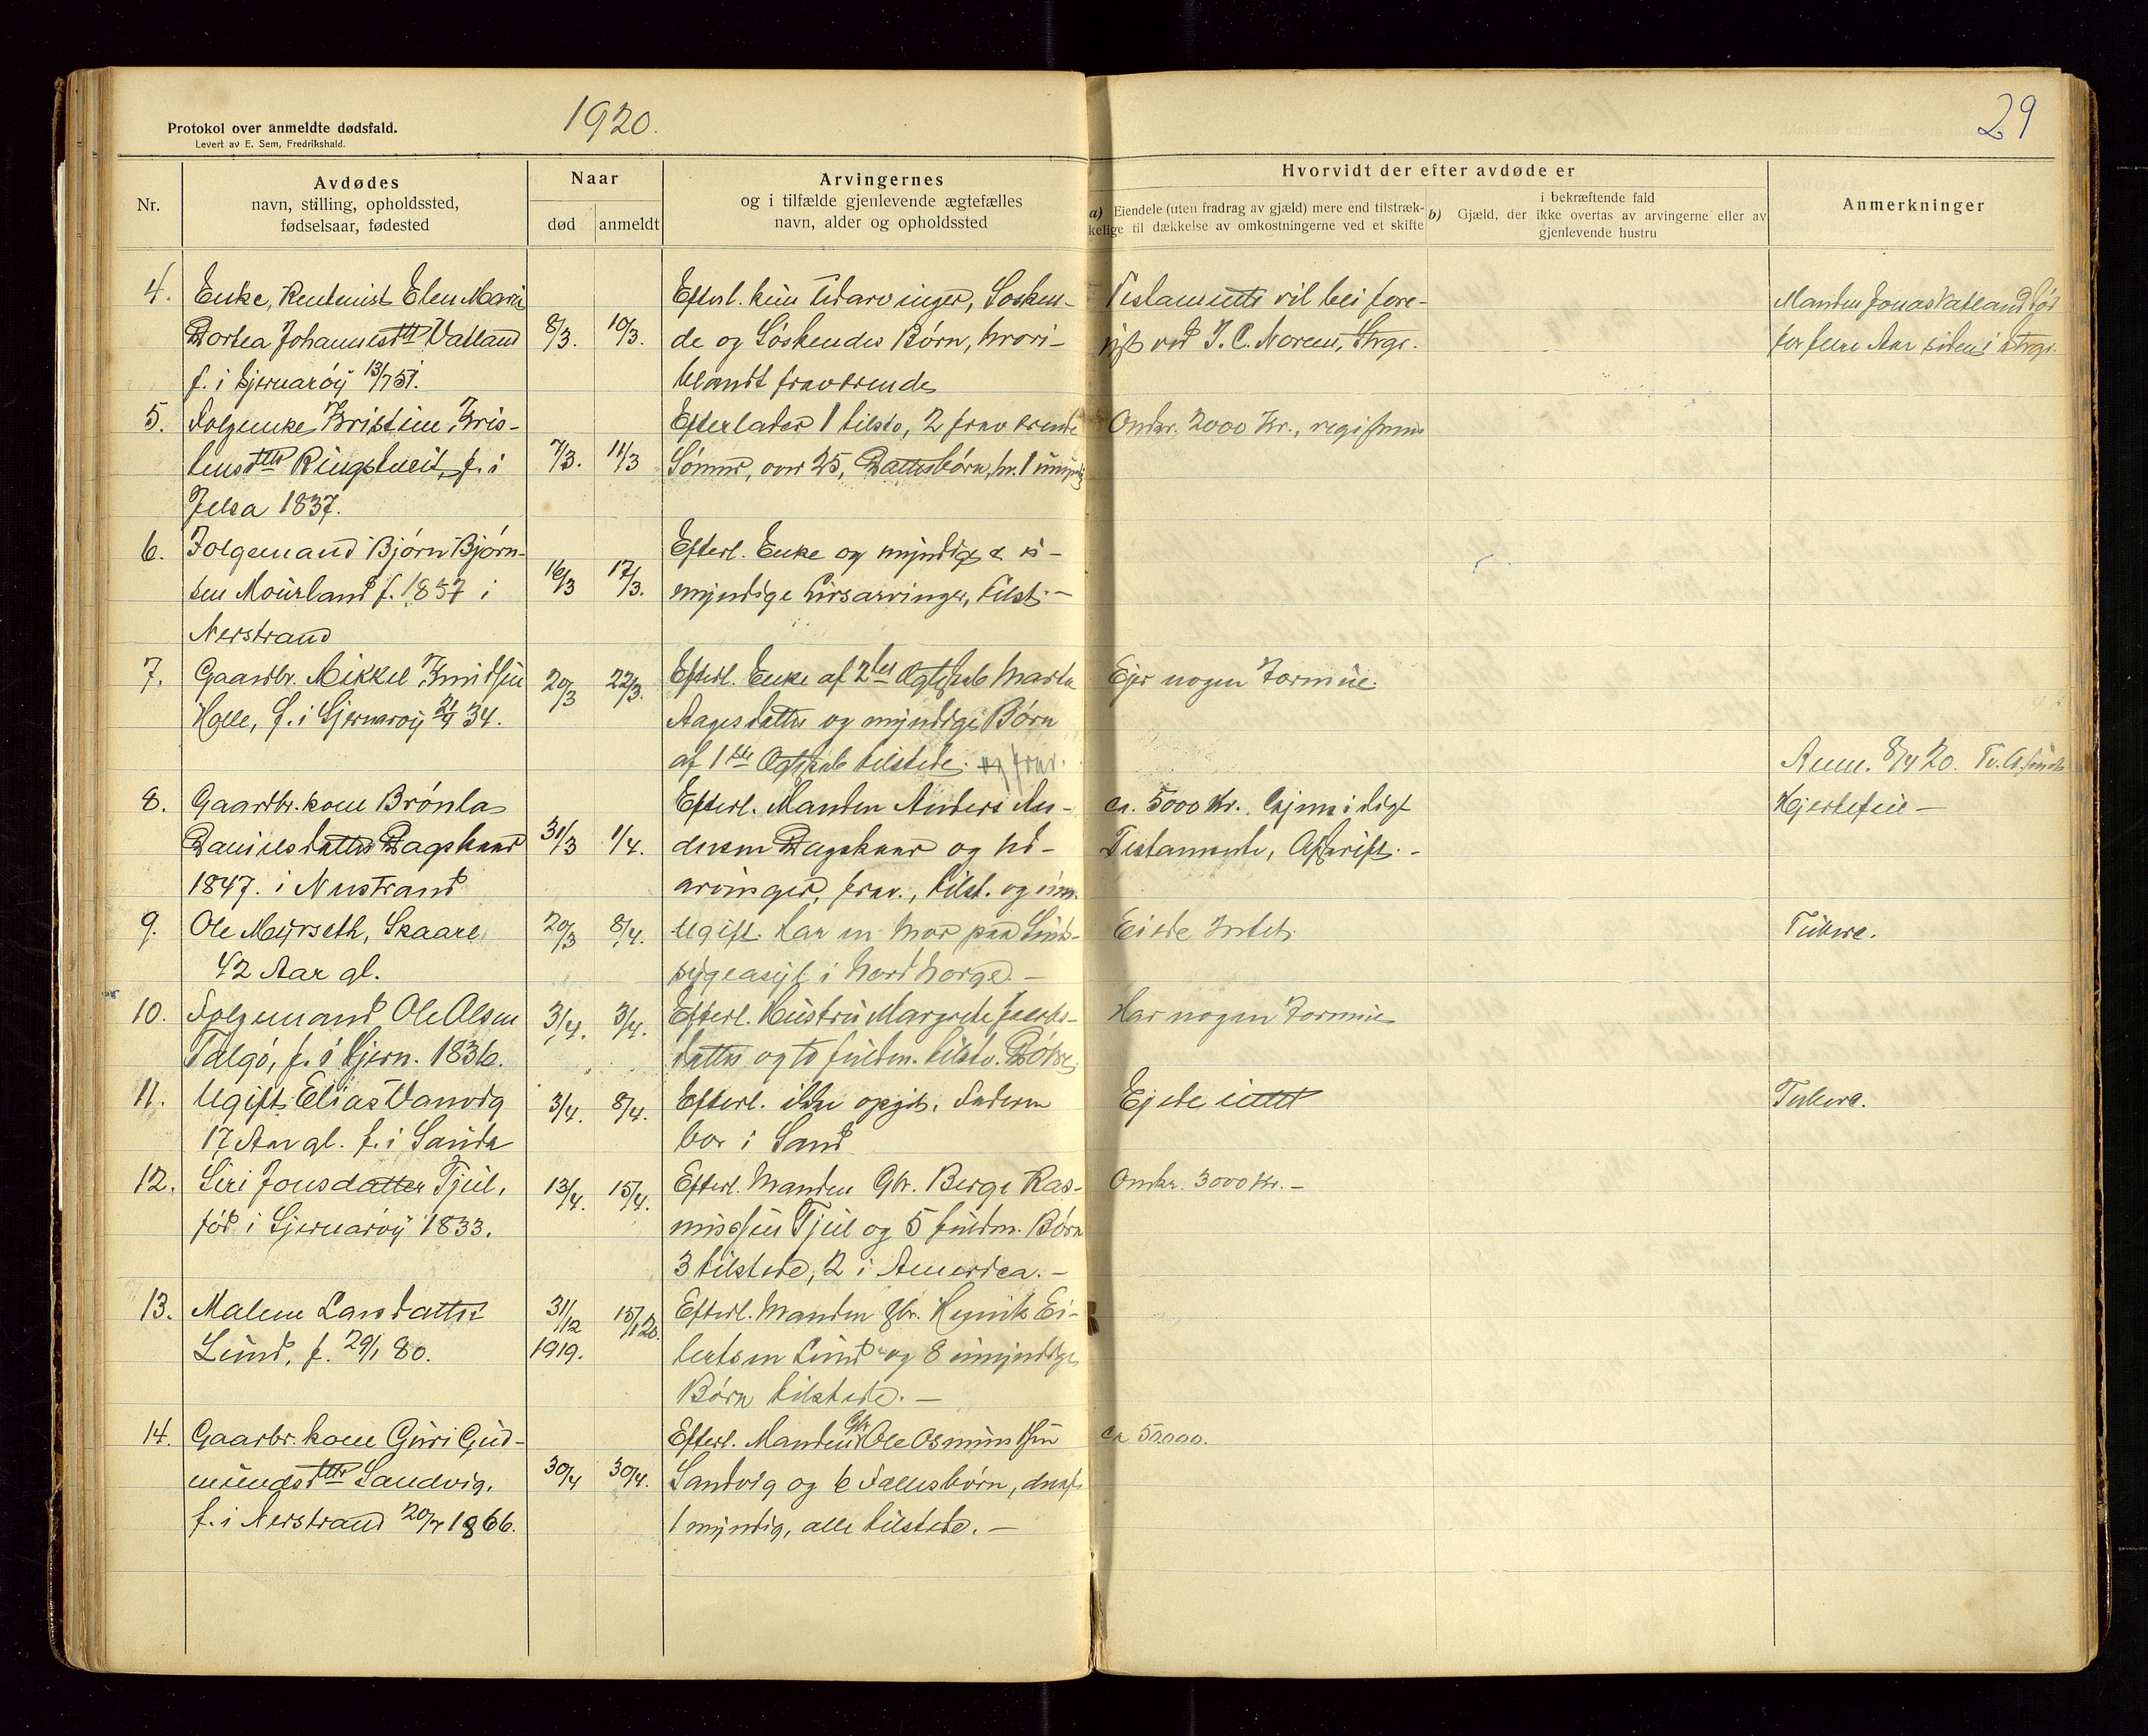 Protokol over anmeldte dødsfald.
Levert av E. Sem, Fredrikshald.
1920.
29
Nr.
Avdødes
navn, stilling, opholdssted,
fødselsaar, fødested
Naar
død
anmeldt
Arvingernes
og i tilfælde gjenlevende ægtefælles
navn, alder og opholdssted
Hvorvidt der efter avdøde er
a) Eiendele (uten fradrag av gjæld) mere end tilstræk-
kelige til dækkelse av omkostningerne ved et skifte
i bekræftende fald
b) Gjæld, der ikke overtas av arvingerne eller av
gjenlevende hustru
Anmerkninger
4. Enke, Rentenist Elen Marie
Dortea Johannesdtt Vatland
f. i Sjernarøy 13/7 51.
8/3. 10/3.
Efterl. kun Udarvinger, Søsken-
de og Søskendes Børn, hvori-
blandt fraværende
Testamente vil bli fore-
vist ved J. C. Norem, Strgr.
Manden Jonas Vatland død
for flere Aar siden i Strgr.
5. Folgeenke Kristine Kris-
tensdtt Ringstveit, f. i
Jelsa 1837.
7/3. 11/3
Efterlader 1 tilstv, 2 fraværende
Sønner, over 25, Datterbørn, hv. 1 umyndig
Omkr. 2000 Kr.,
6. Folgemand Bjørn Bjørn-
sen Mourland f. 1837 i
Nerstrand
16/3 17/3.
Efterl. Enke og myndige & u-
myndige Livsarvinger, tilst. -
7. Gaardbr. Mikkel Knudsen
Halle, f. i Sjernarøy 34.
20/3 22/3.
Efterl. Enke af 2det Ægteskab Marta
Aagesdatter og myndige Børn
af 1ste Ægteskab tilstede. og frav.
Ejer nogen Formue.
8. Gaardbr. kone Brønla
Danielsdatter Dagsland
1847. i Nerstrand
31/3 1/4.
Efterl. Manden Anders An-
dersen Dagsland og ud-
arvinger, frav., tilst. og um.
ca. 5000 Kr. Gjensidigt
Testamente, Afskrift. -
Anm. 8/4 20.
Hjertefeil -
9. Ole Myrseth, Skaare,
42 Aar gl.
20/3 8/4.
Ugift. Har en Mor paa Sind-
sygeasyl i Nord Norge. -
Eiede Intet.
Tuberc.
10. Folgemand Ole Olsen
Talgø, f. i Sjern. 1836.
3/4. 3/4.
Efterl. Hustru Margrete Jacobs-
datter og to fuldm. tilstv. Døtre.
Har nogen Formue
11. Ugift Elias Vanvig
17 Aar gl. f. i Sauda
3/4. 8/4.
Efterl. ikke opgit. Faderen
bor i Sand
Ejede intet
Tuberc.
12. Siri Jonsdatter Tjul,
fød i Sjernarøy 1833.
13/4. 15/4.
Efterl. Manden Gbr. Berge Ras-
mussen Tjul og 5 fuldm. Børn
3 tilstede, 2 i Amerika. -
Omkr. 3000 Kr. -
13. Malene Larsdatter
Lund, f. 29/1 80.
31/12
1919.
15/1 20.
Efterl. Manden Gbr. Henrik Ei-
lertsen Lund og 8 umyndige
Børn tilstede. -
14. Gaarbr. kone Guri Gud-
mundsdtr Sandvig,
f. i Nerstrand 1866.
30/4 30/4.
Efterl. Manden Gbr. Ole Osmundsen
Sandvig og 6 Fællesbørn, deraf
1 myndig, alle tilstede. -
ca 50000.